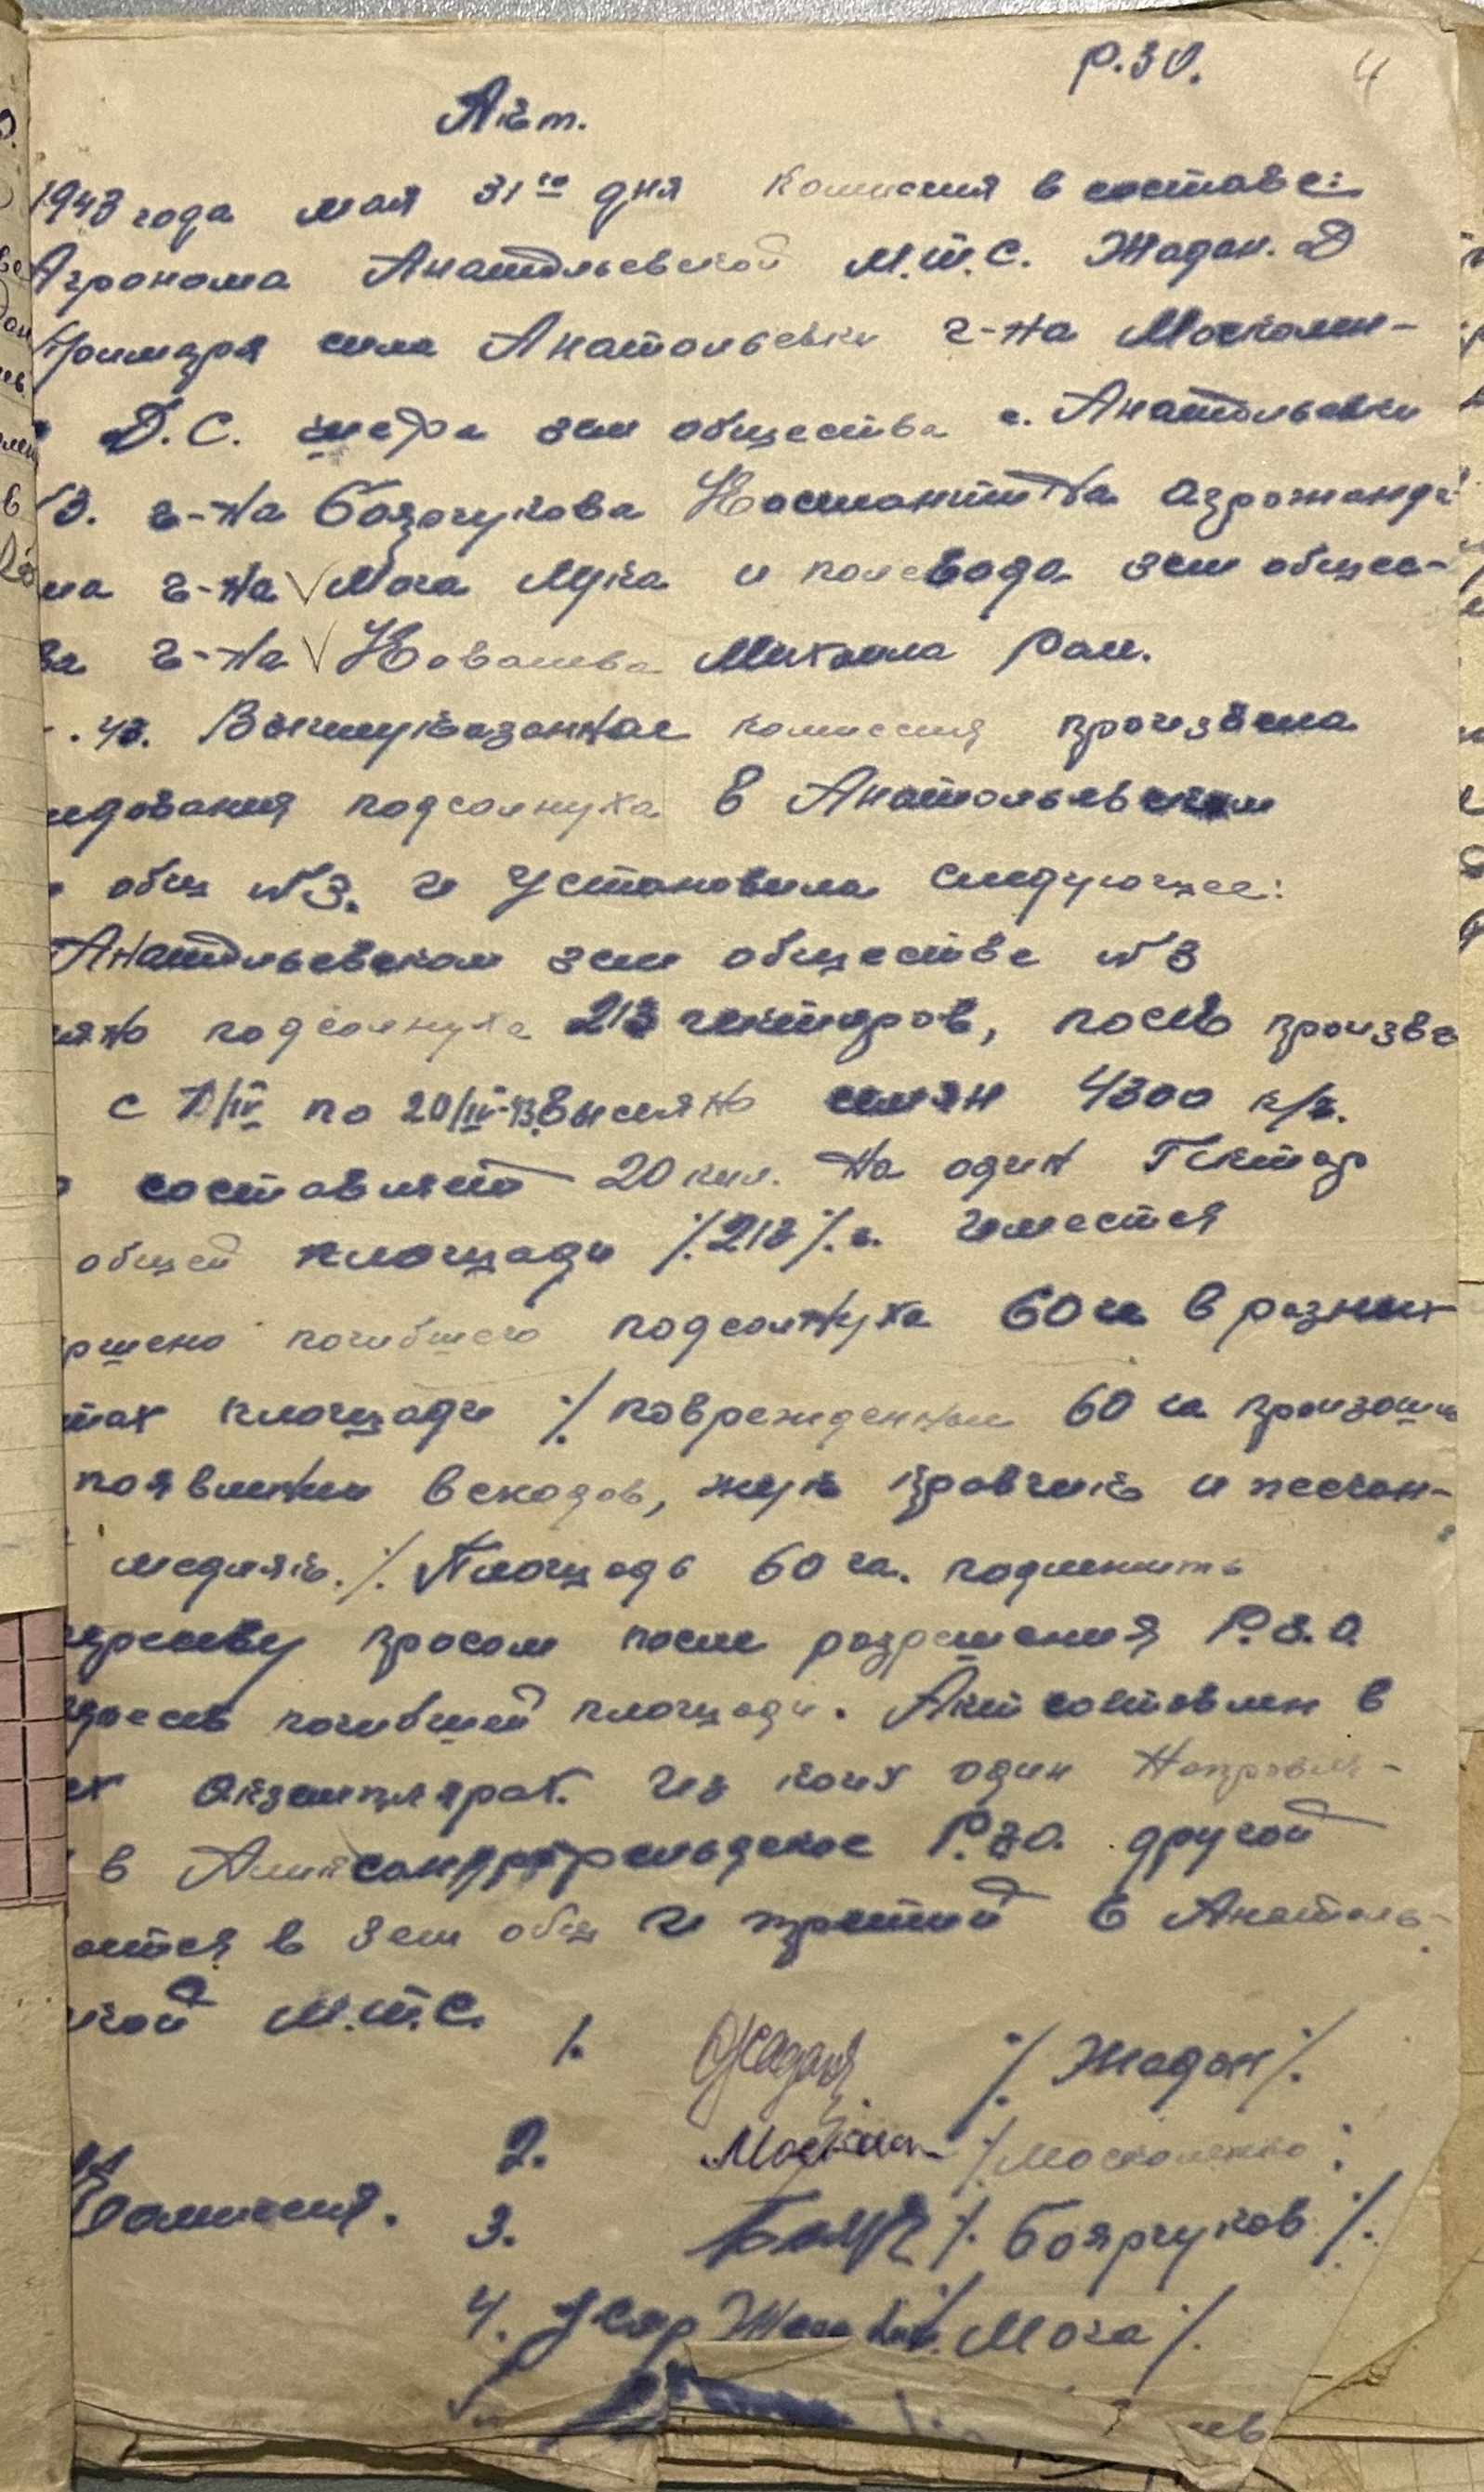 Р.ЗО. 4
Акт.
1943 года мая 31го дня комиссия в составе:
Агронома Анатольевской М.Т.С. Жадан. Д
Примаря села Анатольевки г-на Москолен-
Д.С. шефа зем общества с. Анатольевки
г-на Боярчукова Константина
г-на Мога Лука и полевода зем общес-
ва г-на Ковалева Михаила Ром.
Вышеуказанная комиссия произвела
едования подсолнуха в Анатольевском
общ №3. и установила следующее:
Анатольевском зем обществе №3
яно подсолнуха 213 гектаров, посев произве
с /IV по 20/IV-43. высеяно семян 4300 к/г.
составляет 20 кил. на один Гектар
общей площади ./213/. г. имеется
ршено погибшего подсолнуха 60 га в разных
тах площади ./повреждении 60 га произош
появлении всходов, жук кравчик и песчан-
медляк./. Площадь 60 га. подлежить
просом после разрешения Р.З.О.
погибшей площади. Акт составлен в
ех экземплярах. из коих один Направля-
в Александрфельдское Р.ЗО. другой
ается в зем общ и третий в Анатоль-
кой М.Т.С. 1. Жадан ./Жадан/.
2. ./Москоленко
Комиссия. 3. ./Боярчуков./.
4. Мога/.
ев